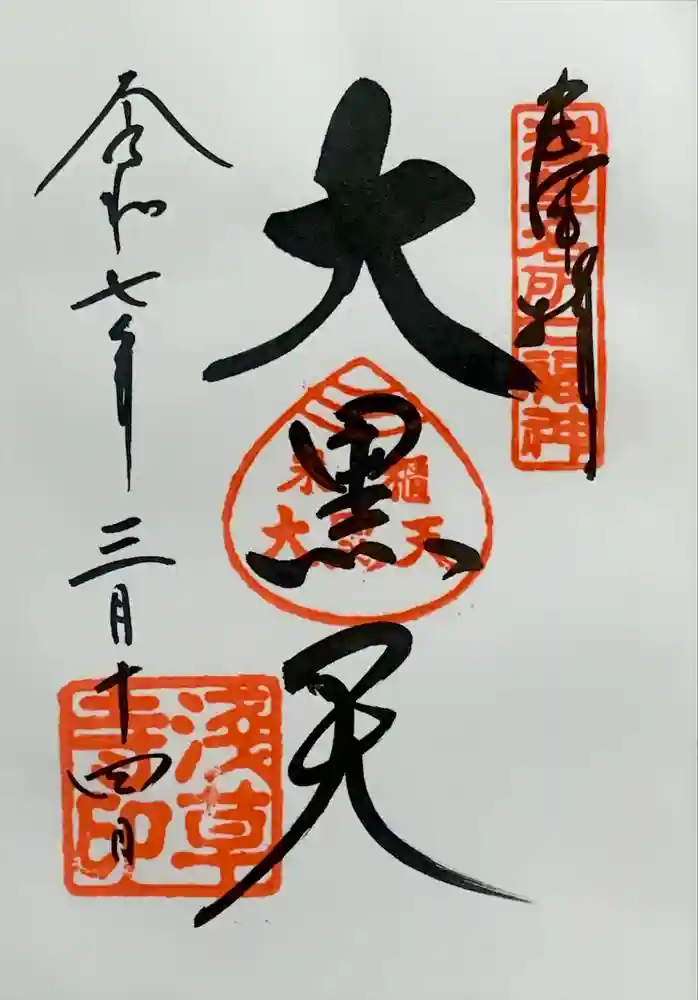 奉拝
浅草名所七福神
大黒天
米櫃
大黒天
令和七年三月十四日
浅草寺印